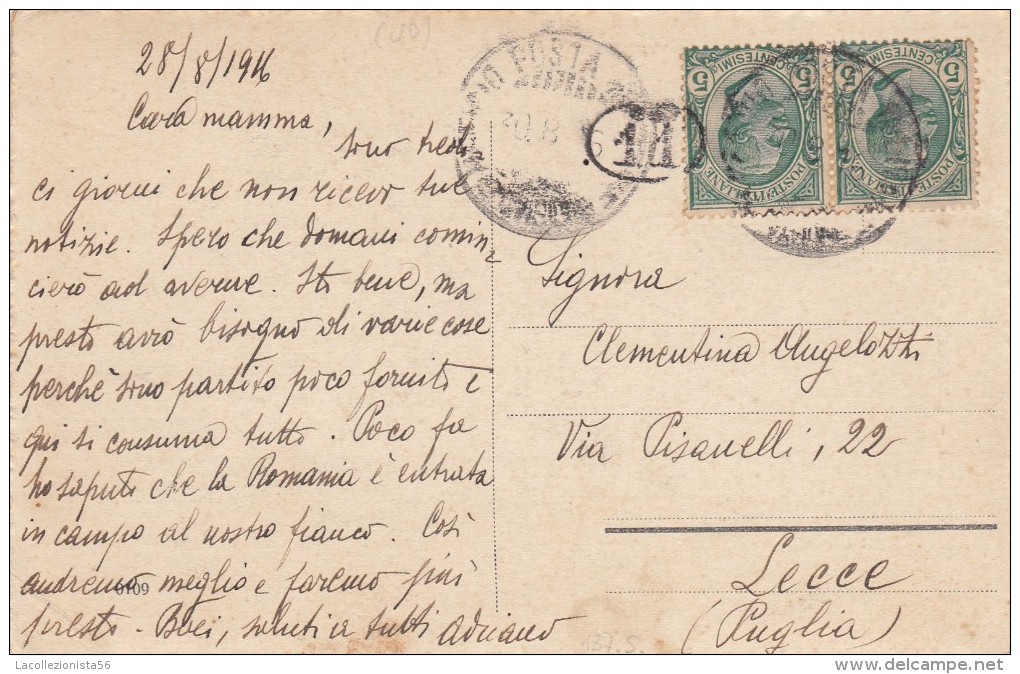 28/8/1916
Cara mamma,
sono tredi
ci giorni che non ricevo tue
notizie. Spero che domani comin
cierò ad averne. Sto bene, ma
presto avrò bisogno di varie cose
perchè sono partito poco fornito e
qui si consuma tutto. Poco fa
ho saputo che la Romania è entrata
in campo al nostro fianco. Così
andremo meglio e faremo più
presto. Baci, saluti a tutti Adriano
0109
POSTA
30.8
III
5
CENTESIMI
POSTE ITALIANE
5
CENTESIMI
POSTE ITALIANE
Signora
Clementina Angelozzi
Via Pisanelli, 22
Lecce
(Puglia)
137.S.
Lacollezionista56
delcampe.net